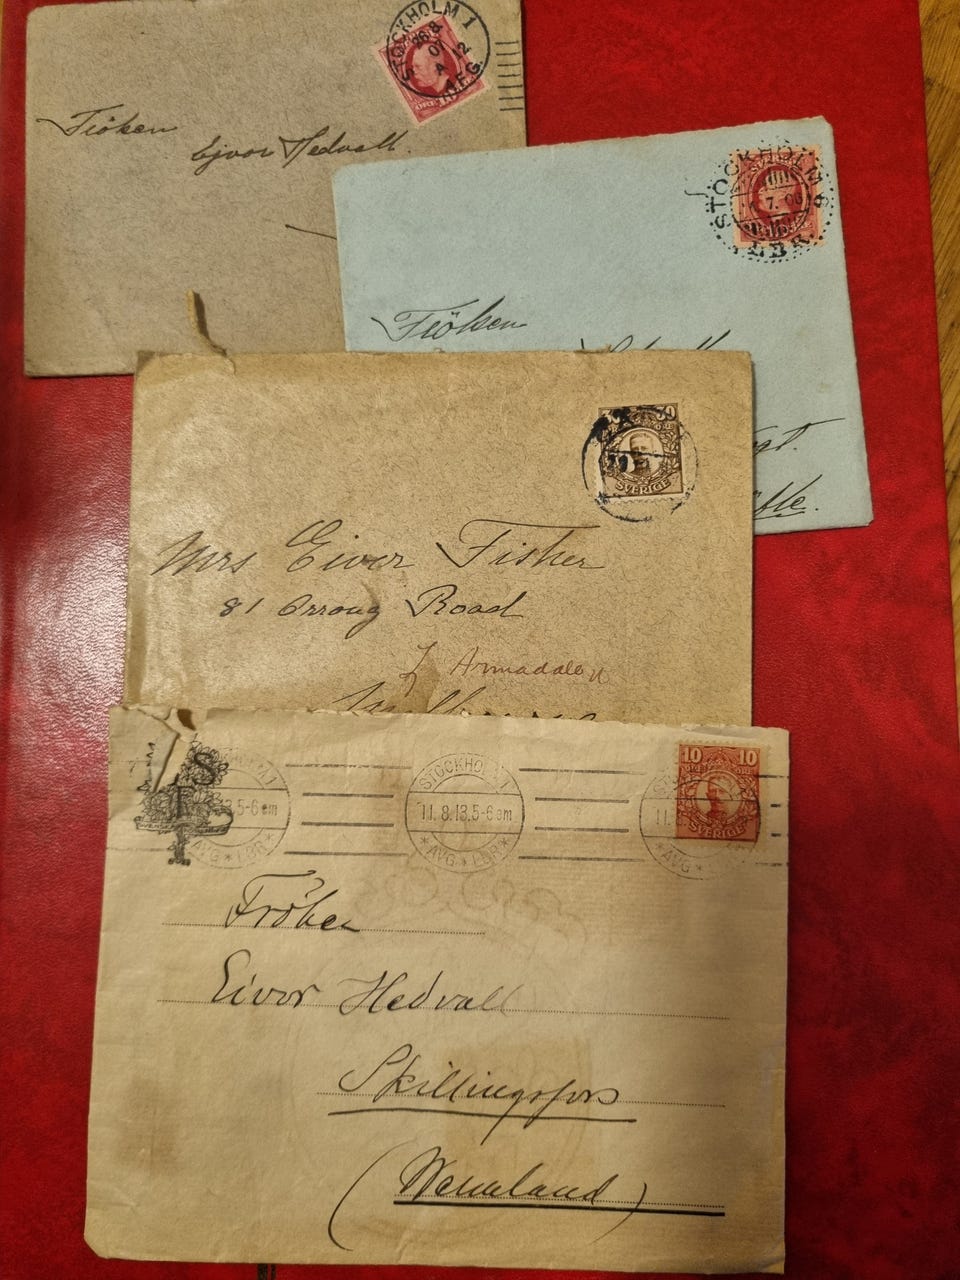 STOCKHOLM 1
26 8
07
A 12
AFG.
Fröken
Eivor Hedvall.
STOCKHOLM 8
7. 06
LBR.
Fröken
gt.
fle.
30
SVERIGE
Mrs Eivor Fisher
81 Orrong Road
Armadale
STOCKHOLM 1
11. 8.13.5-6 em
*AVG*LBR*
10 10
SVERIGE
S
F
Fröken
Eivor Hedvall
Skillingsfors
(Wermland)